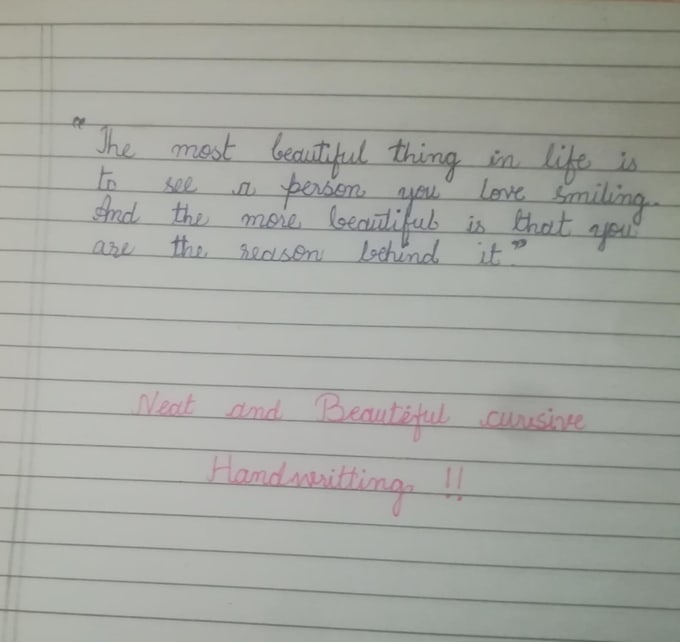 "The most beautiful thing in life is
to see a person you love smiling.
And the more beautiful is that you
are the reason behind it"
Neat and Beautiful cursive
Handwritting !!